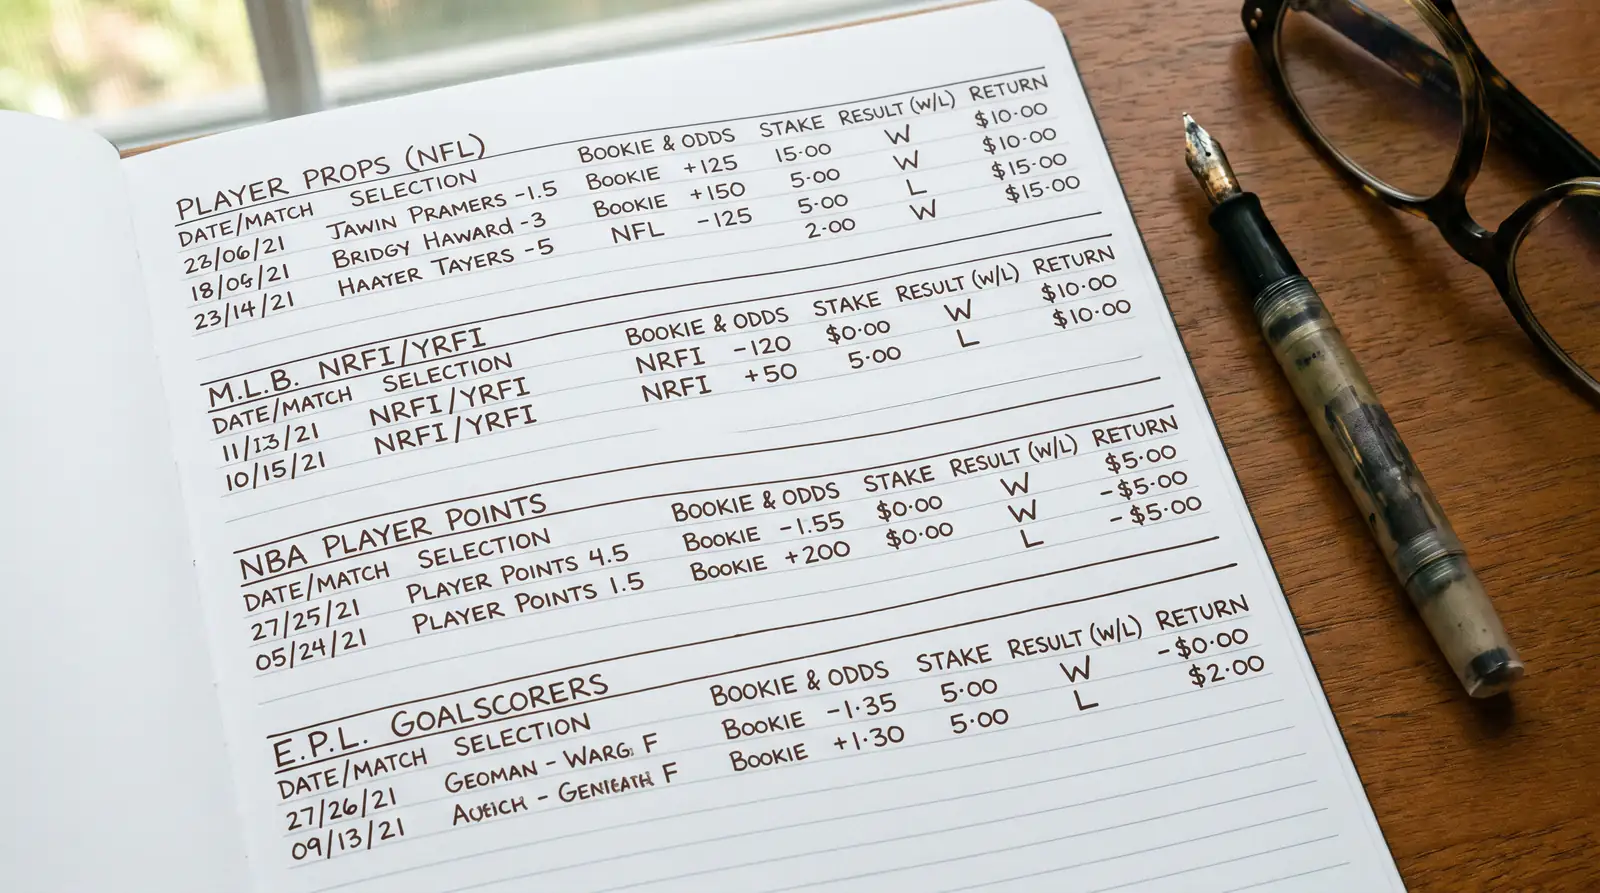 PLAYER PROPS (NFL)
DATE/MATCH SELECTION BOOKIE & ODDS STAKE RESULT (W/L) RETURN
23/06/21 JAWIN PRAMERS -1.5 BOOKIE +125 15.00 W $10.00
18/06/21 BRIDGY HAWARD -3 BOOKIE +150 5.00 W $10.00
23/14/21 HAAYER TAYERS -5 NFL -125 5.00 L $15.00
2.00 W $15.00
M.L.B. NRFI/YRFI
DATE/MATCH SELECTION BOOKIE & ODDS STAKE RESULT (W/L) RETURN
11/13/21 NRFI/YRFI NRFI -120 $0.00 W $10.00
10/15/21 NRFI/YRFI NRFI +50 5.00 L $10.00
NBA PLAYER POINTS
DATE/MATCH SELECTION BOOKIE & ODDS STAKE RESULT (W/L) RETURN
27/25/21 PLAYER POINTS 4.5 BOOKIE -1.55 $0.00 W $5.00
05/24/21 PLAYER POINTS 1.5 BOOKIE +200 $0.00 W -$5.00
L -$5.00
E.P.L. GOALSCORERS
DATE/MATCH SELECTION BOOKIE & ODDS STAKE RESULT (W/L) RETURN
27/26/21 GEOMAN - F BOOKIE -1.35 5.00 W -$0.00
09/13/21 - F BOOKIE +1.30 5.00 L $2.00